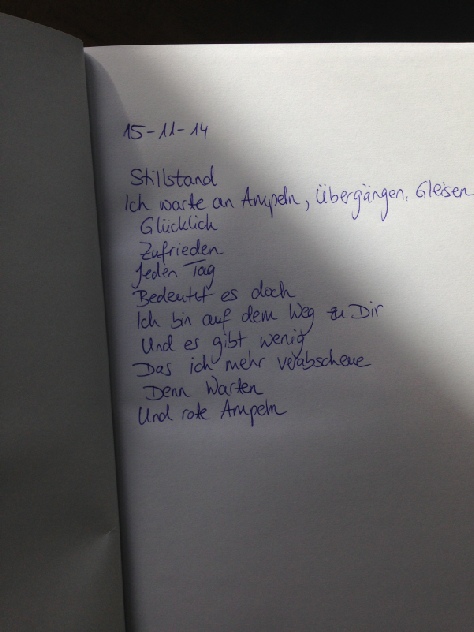 15-11-14
Stillstand
Ich warte an Ampeln, Übergängen, Gleisen
Glücklich
Zufrieden
Jeden Tag
Bedeutet es doch
Ich bin auf dem Weg zu Dir
Und es gibt wenig
Das ich mehr verabscheue
Denn Warten
Und rote Ampeln